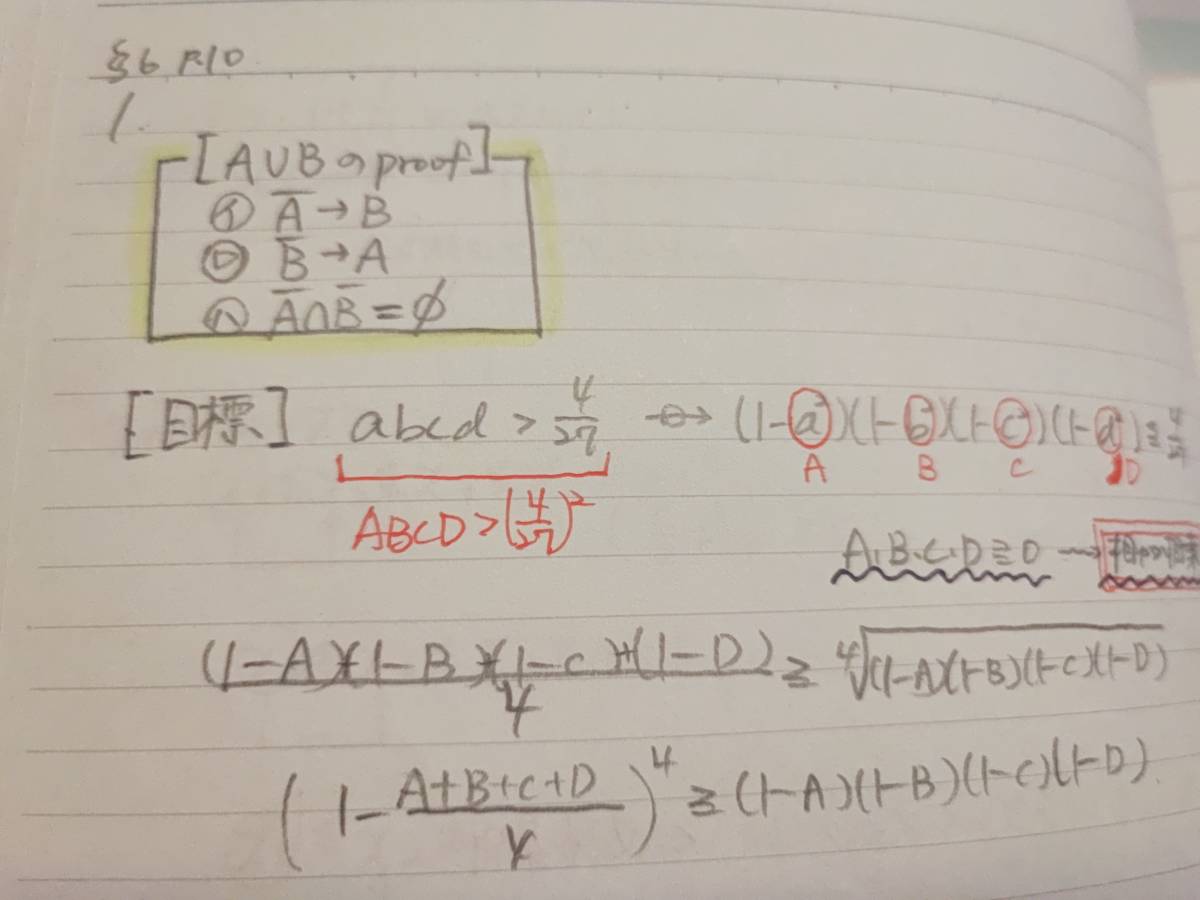 §6 P.10
1.
[A∪Bのproof]
㋑ A̅→B
㋺ B̅→A
㋩ A̅∩B̅=∅
[目標] abcd > 4/27 ↔ (1-a²)(1-b²)(1-c²)(1-d²) ≦ 4/27
A B C D
ABCD > (4/27)²
A.B.C.D ≧ 0 → 相加相乗
(1-A)+(1-B)+(1-C)+(1-D)/4 ≧ ⁴√(1-A)(1-B)(1-C)(1-D)
(1 - A+B+C+D/4)⁴ ≧ (1-A)(1-B)(1-C)(1-D).